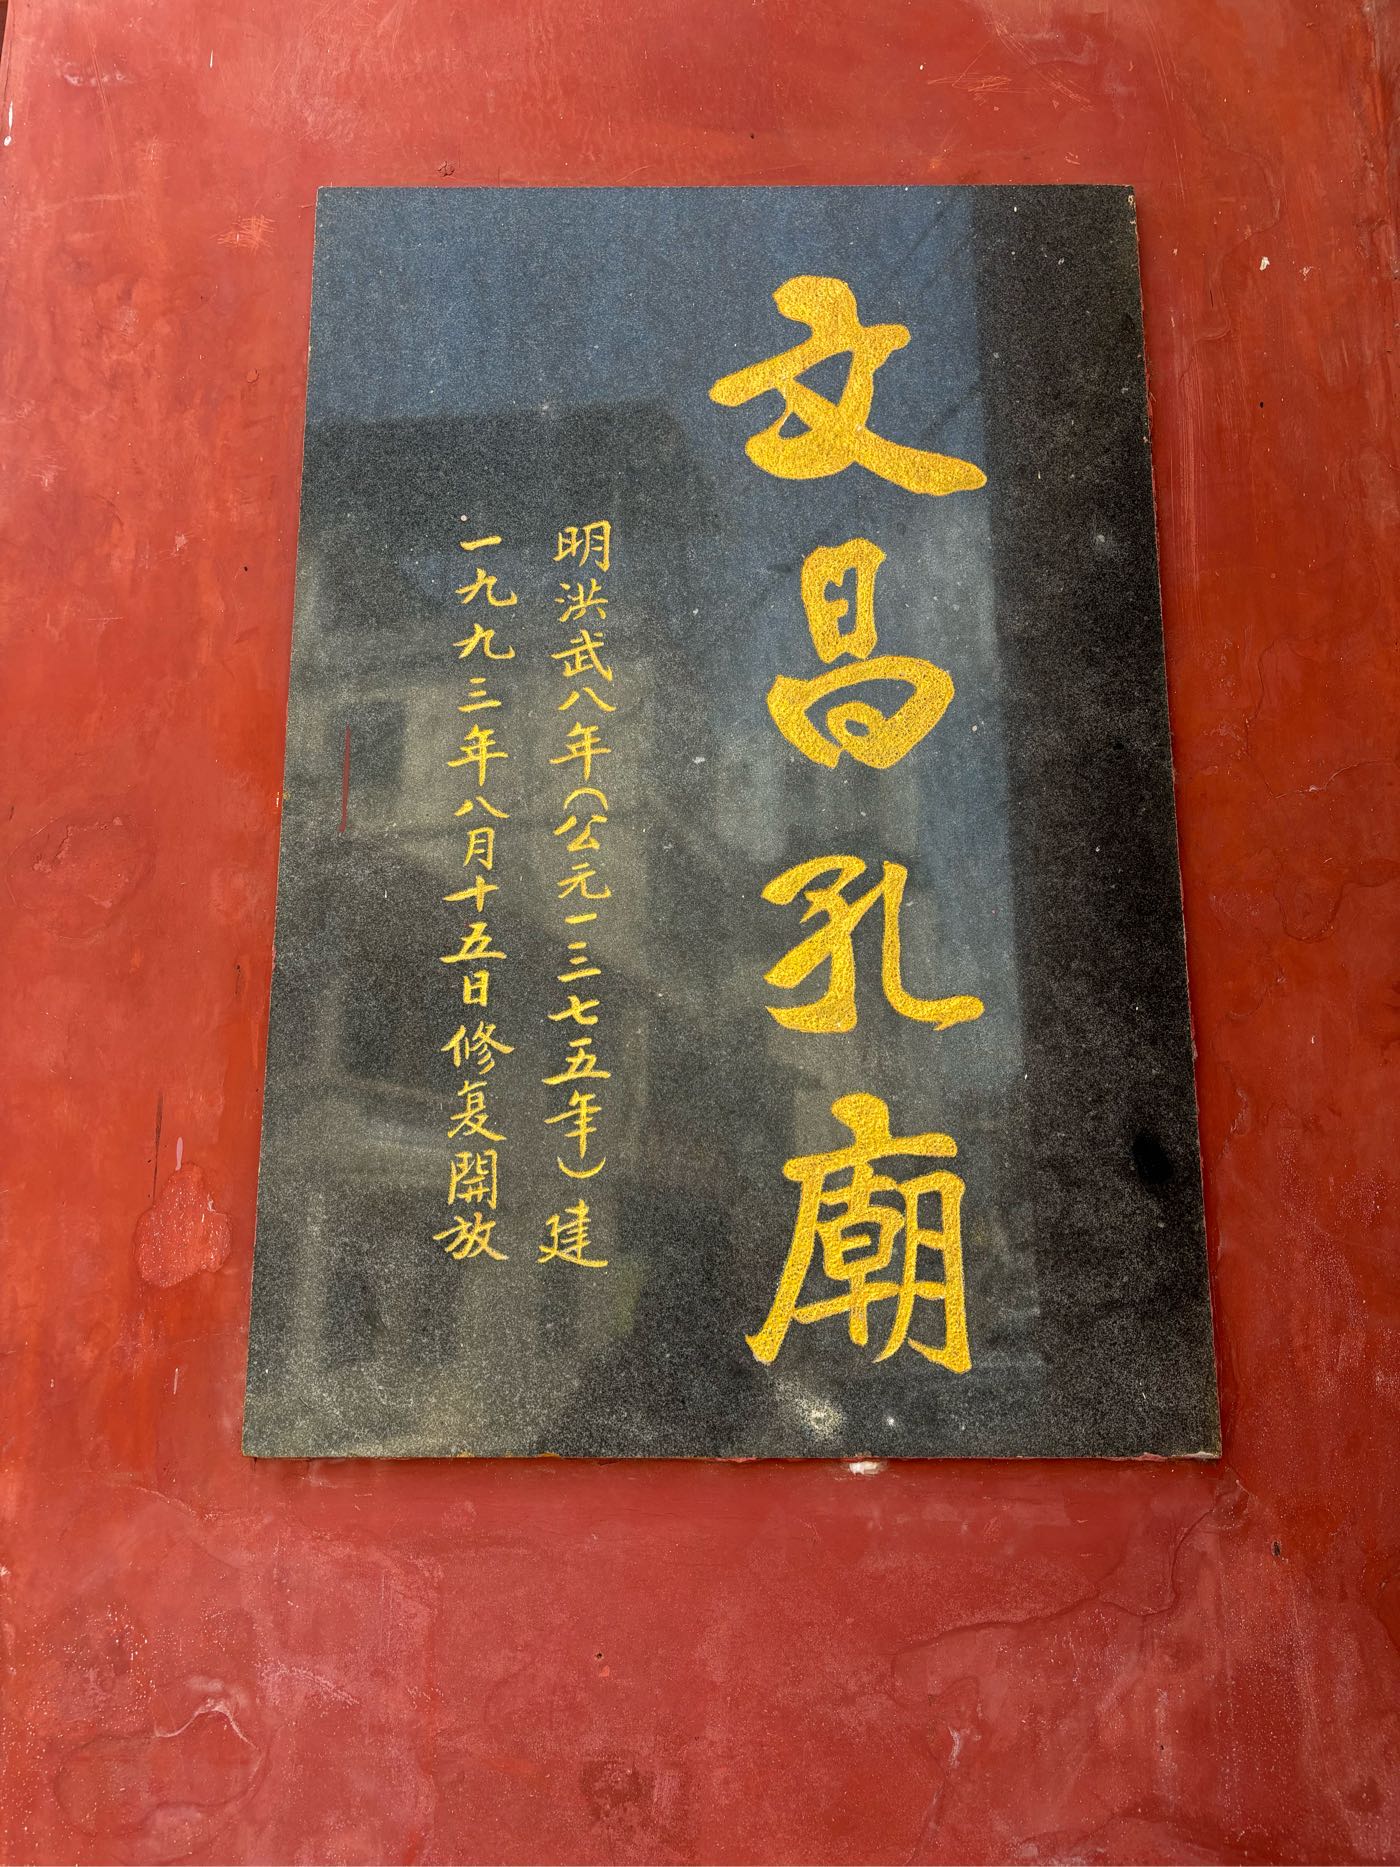 文昌孔廟
明洪武八年(公元一三七五年)建
一九九三年八月十五日修复開放